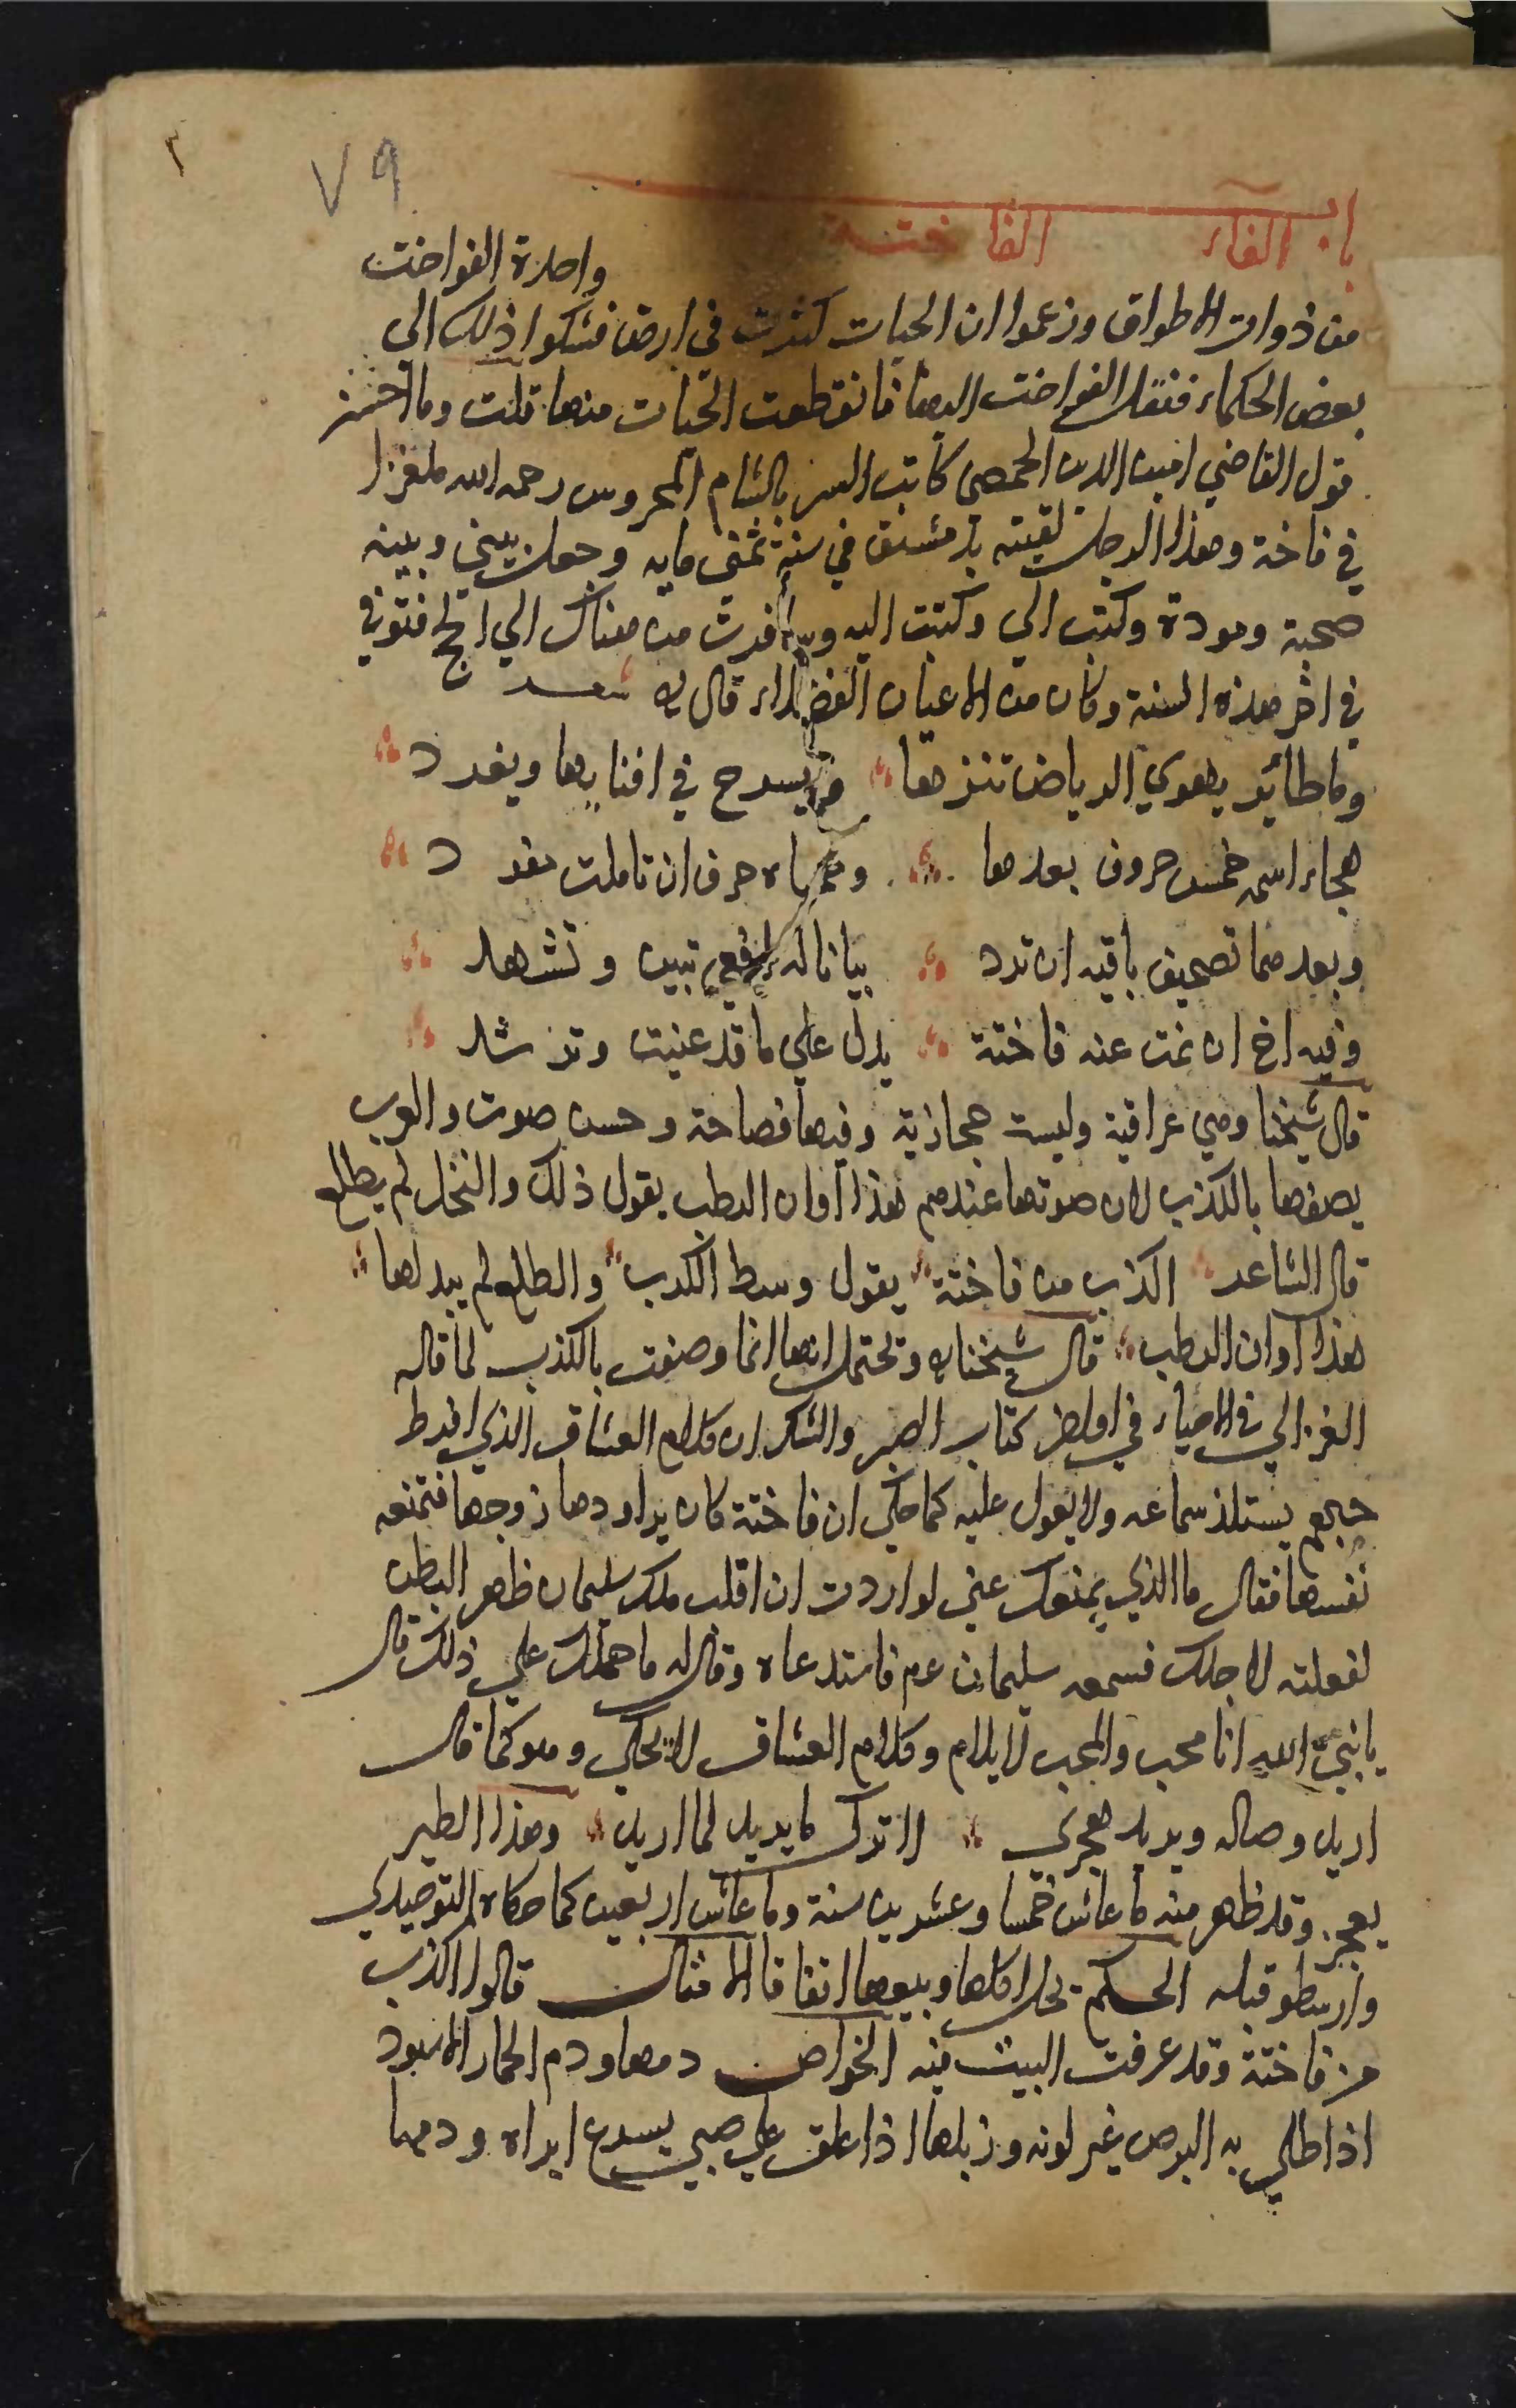 ٣
٧٩
باب الفاء الفاختة
واحدة الفواخت
من ذوات الاطواق وزعموا ان الحيات كثرت في ارض فشكوا ذلك الي
بعض الحكماء فنقل الفواخت اليها فانقطعت الحيات منها قلت وما احسن
قول القاضي امين الدين الحمصي كاتب السر بالشام المحروس رحمه الله ملغزا
في فاختة وهذا الرجل لقيته بدمشق في سنة ثمني مايه وحصل بيني وبينه
صحبة ومودة وكتب الي وكتبت اليه وسافرت من هناك الي الحج فتوفي
في اخر هذه السنة وكان من الاعيان الفضلاء قال شعر
وما طائر يهوي الرياض تنزها ويسرح في افنايها ويغرد
هجاء اسمه خمس حروف بعدها حرف ان تاملت مفرد
وبعدهما تصحيف باقيه ان ترد بيانا له تبين وتشهد
وفيه اخ ان غت عنه فاختة يدل علي ما قد عنيت وترشد
قال شيخنا وهي عراقية وليست حجازية وفيها فصاحة وحسن صوت والعرب
يصفها بالكذب لان صوتها عندهم هذا اوان الرطب يقول ذلك والنخل لم يطلع
قال الشاعر اكذب من فاختة يقول وسط الكرب والطلع لم يبد لها
هذا اوان الرطب قال شيخنا وتحتمل انها انما وصفت بالكذب لما قاله
الغزالي في الاحياء في اواخر كتاب الصبر والشكر ان كلام العشاق الذي افرط
حبهم يستلذ سماعه ولا يعول عليه كما حكي ان فاختة كان يراودها زوجها فتمنعه
نفسها فقال ما الذي يمنعك عني لو اردت ان اقلب ملك سليمان ظهر البطن
لفعلته لاجلك فسمعه سليمان عم فاستدعاه وقال له ما حملك علي ذلك قال
يا نبي الله انا محب والمحب لا يلام وكلام العشاق لا يحكي وهو كما قال
اريد وصاله ويريد هجري فاترك ما يريد لما اريد وهذا الطير
يعمر وقد ظهر منه ما عاش خمسا وعشرين سنة وما عاش اربعين كما حكاه التوحيدي
وارسطو قبله الحكم تحل اكلها وبيعها اتفاقا الامثال قالوا اكذب
من فاختة وقد عرفت البيت فيه الخواص دمها ودم الحمار الاسود
اذا طلي به البرص غير لونه وزبلها اذا علق علي صبي يسرع ابراه ودمها